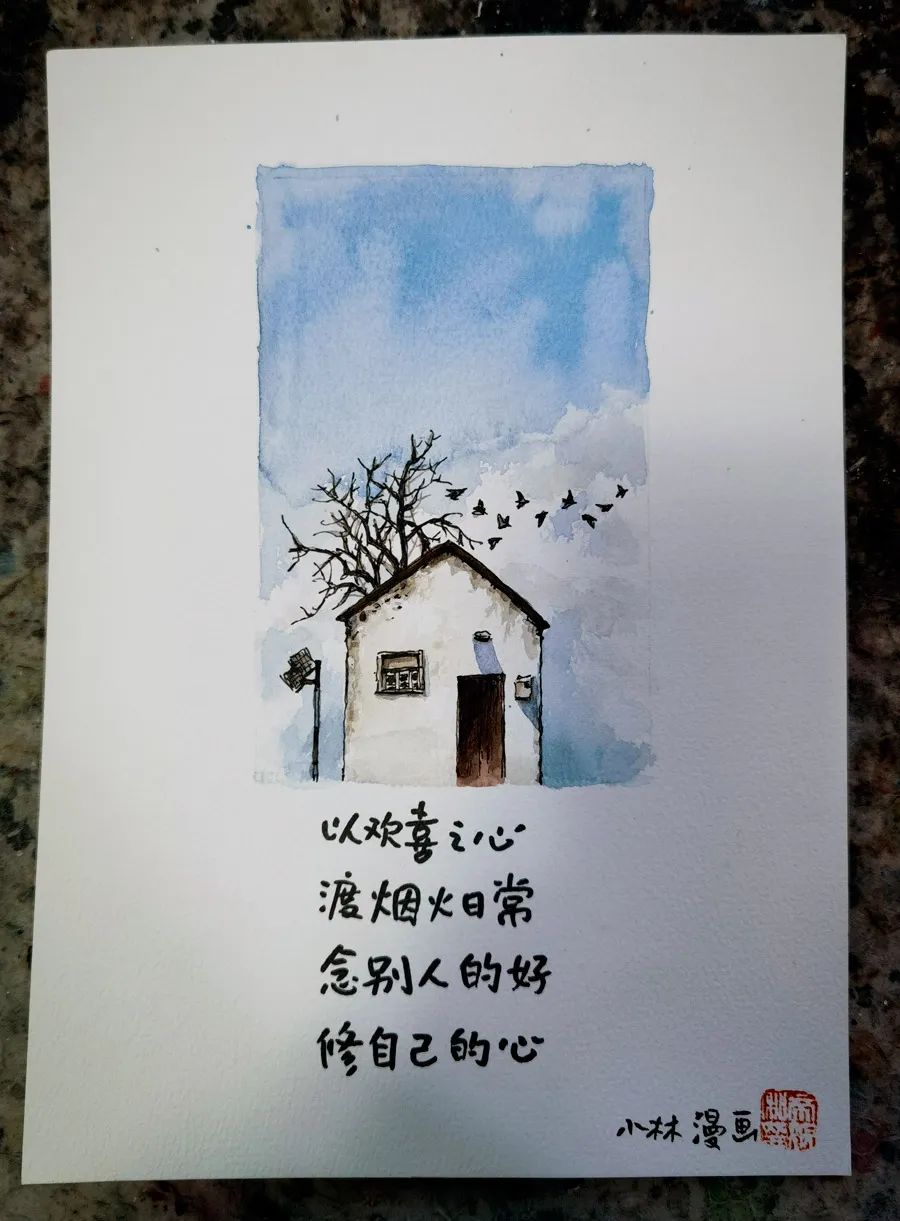 以欢喜之心
渡烟火日常
念别人的好
修自己的心
小林漫画